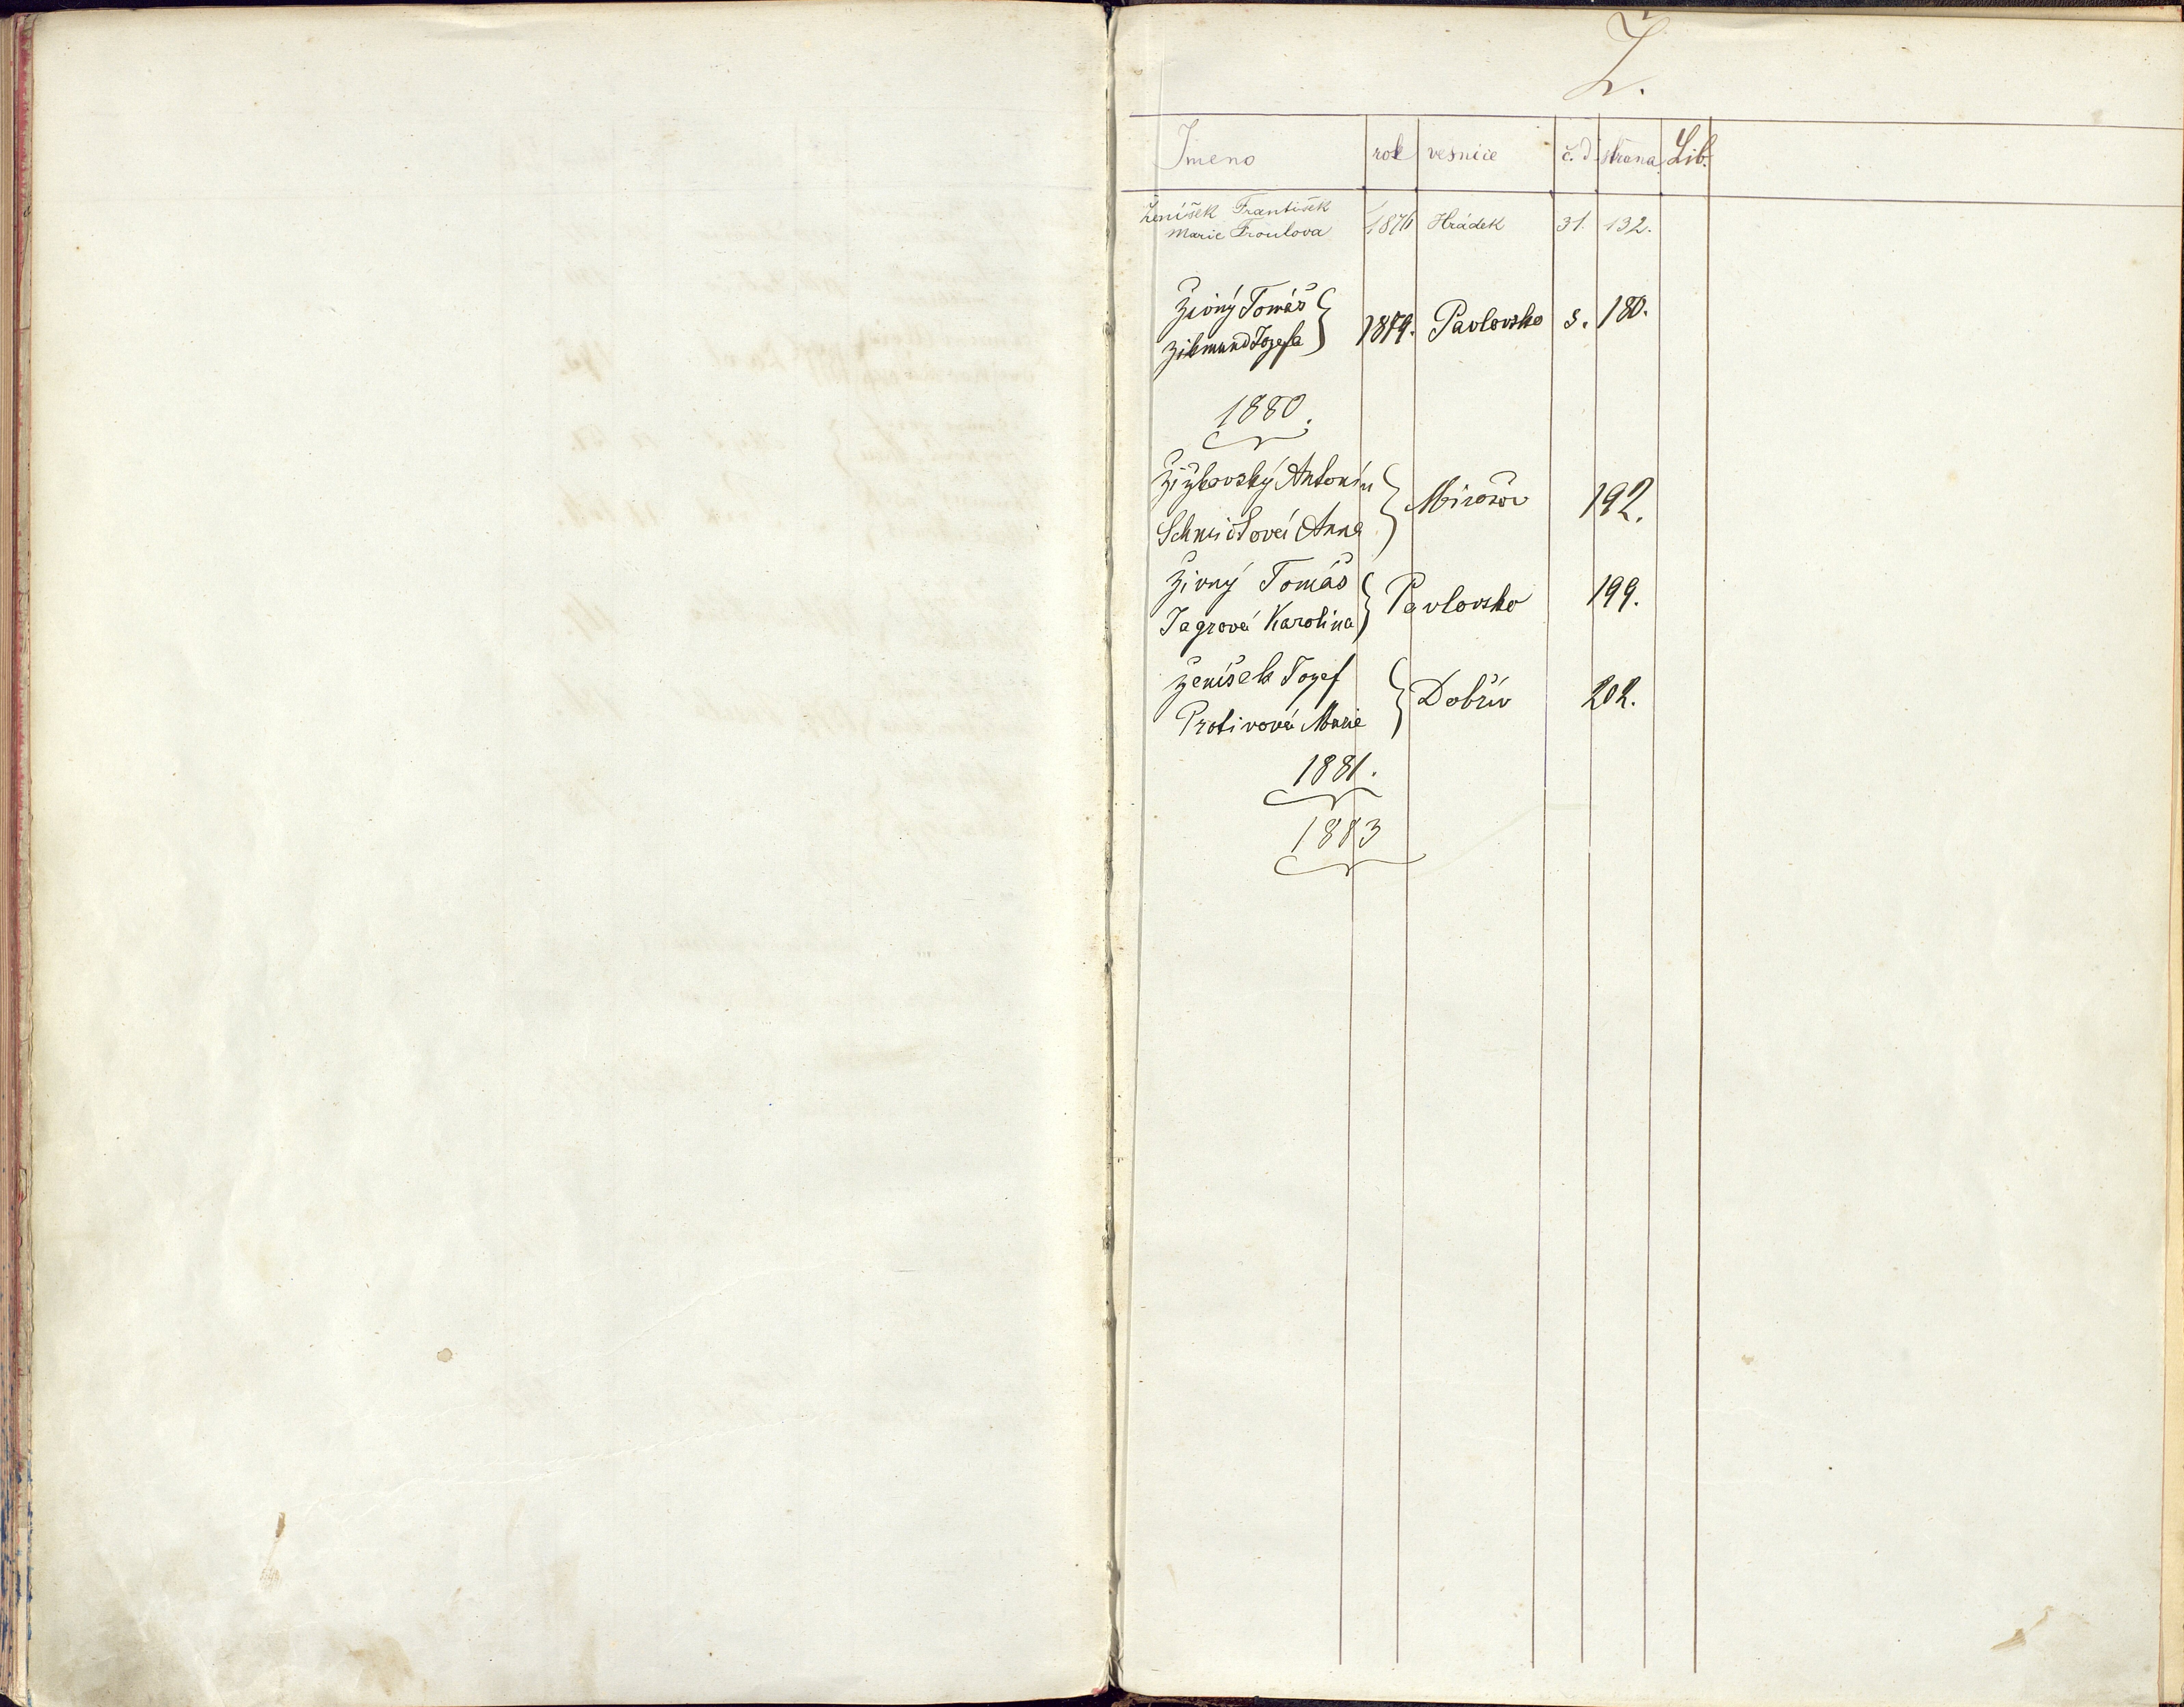 Ž.
Jmeno rok vesnice č. d strana Lib.
Ženíšek František
Marie Froulova 1876 Hrádek 31. 132.
Živný Tomáš
Zikmund Jozefa } 1879. Pavlovsko 8. 180.
1880.
Žižkovský Antonín
Schmidtová Anna } Mirošov 192.
Živný Tomáš
Jagrová Karolina } Pavlovsko 199.
Ženíšek Jozef
Protivová Marie } Dobřív 202.
1881.
1883